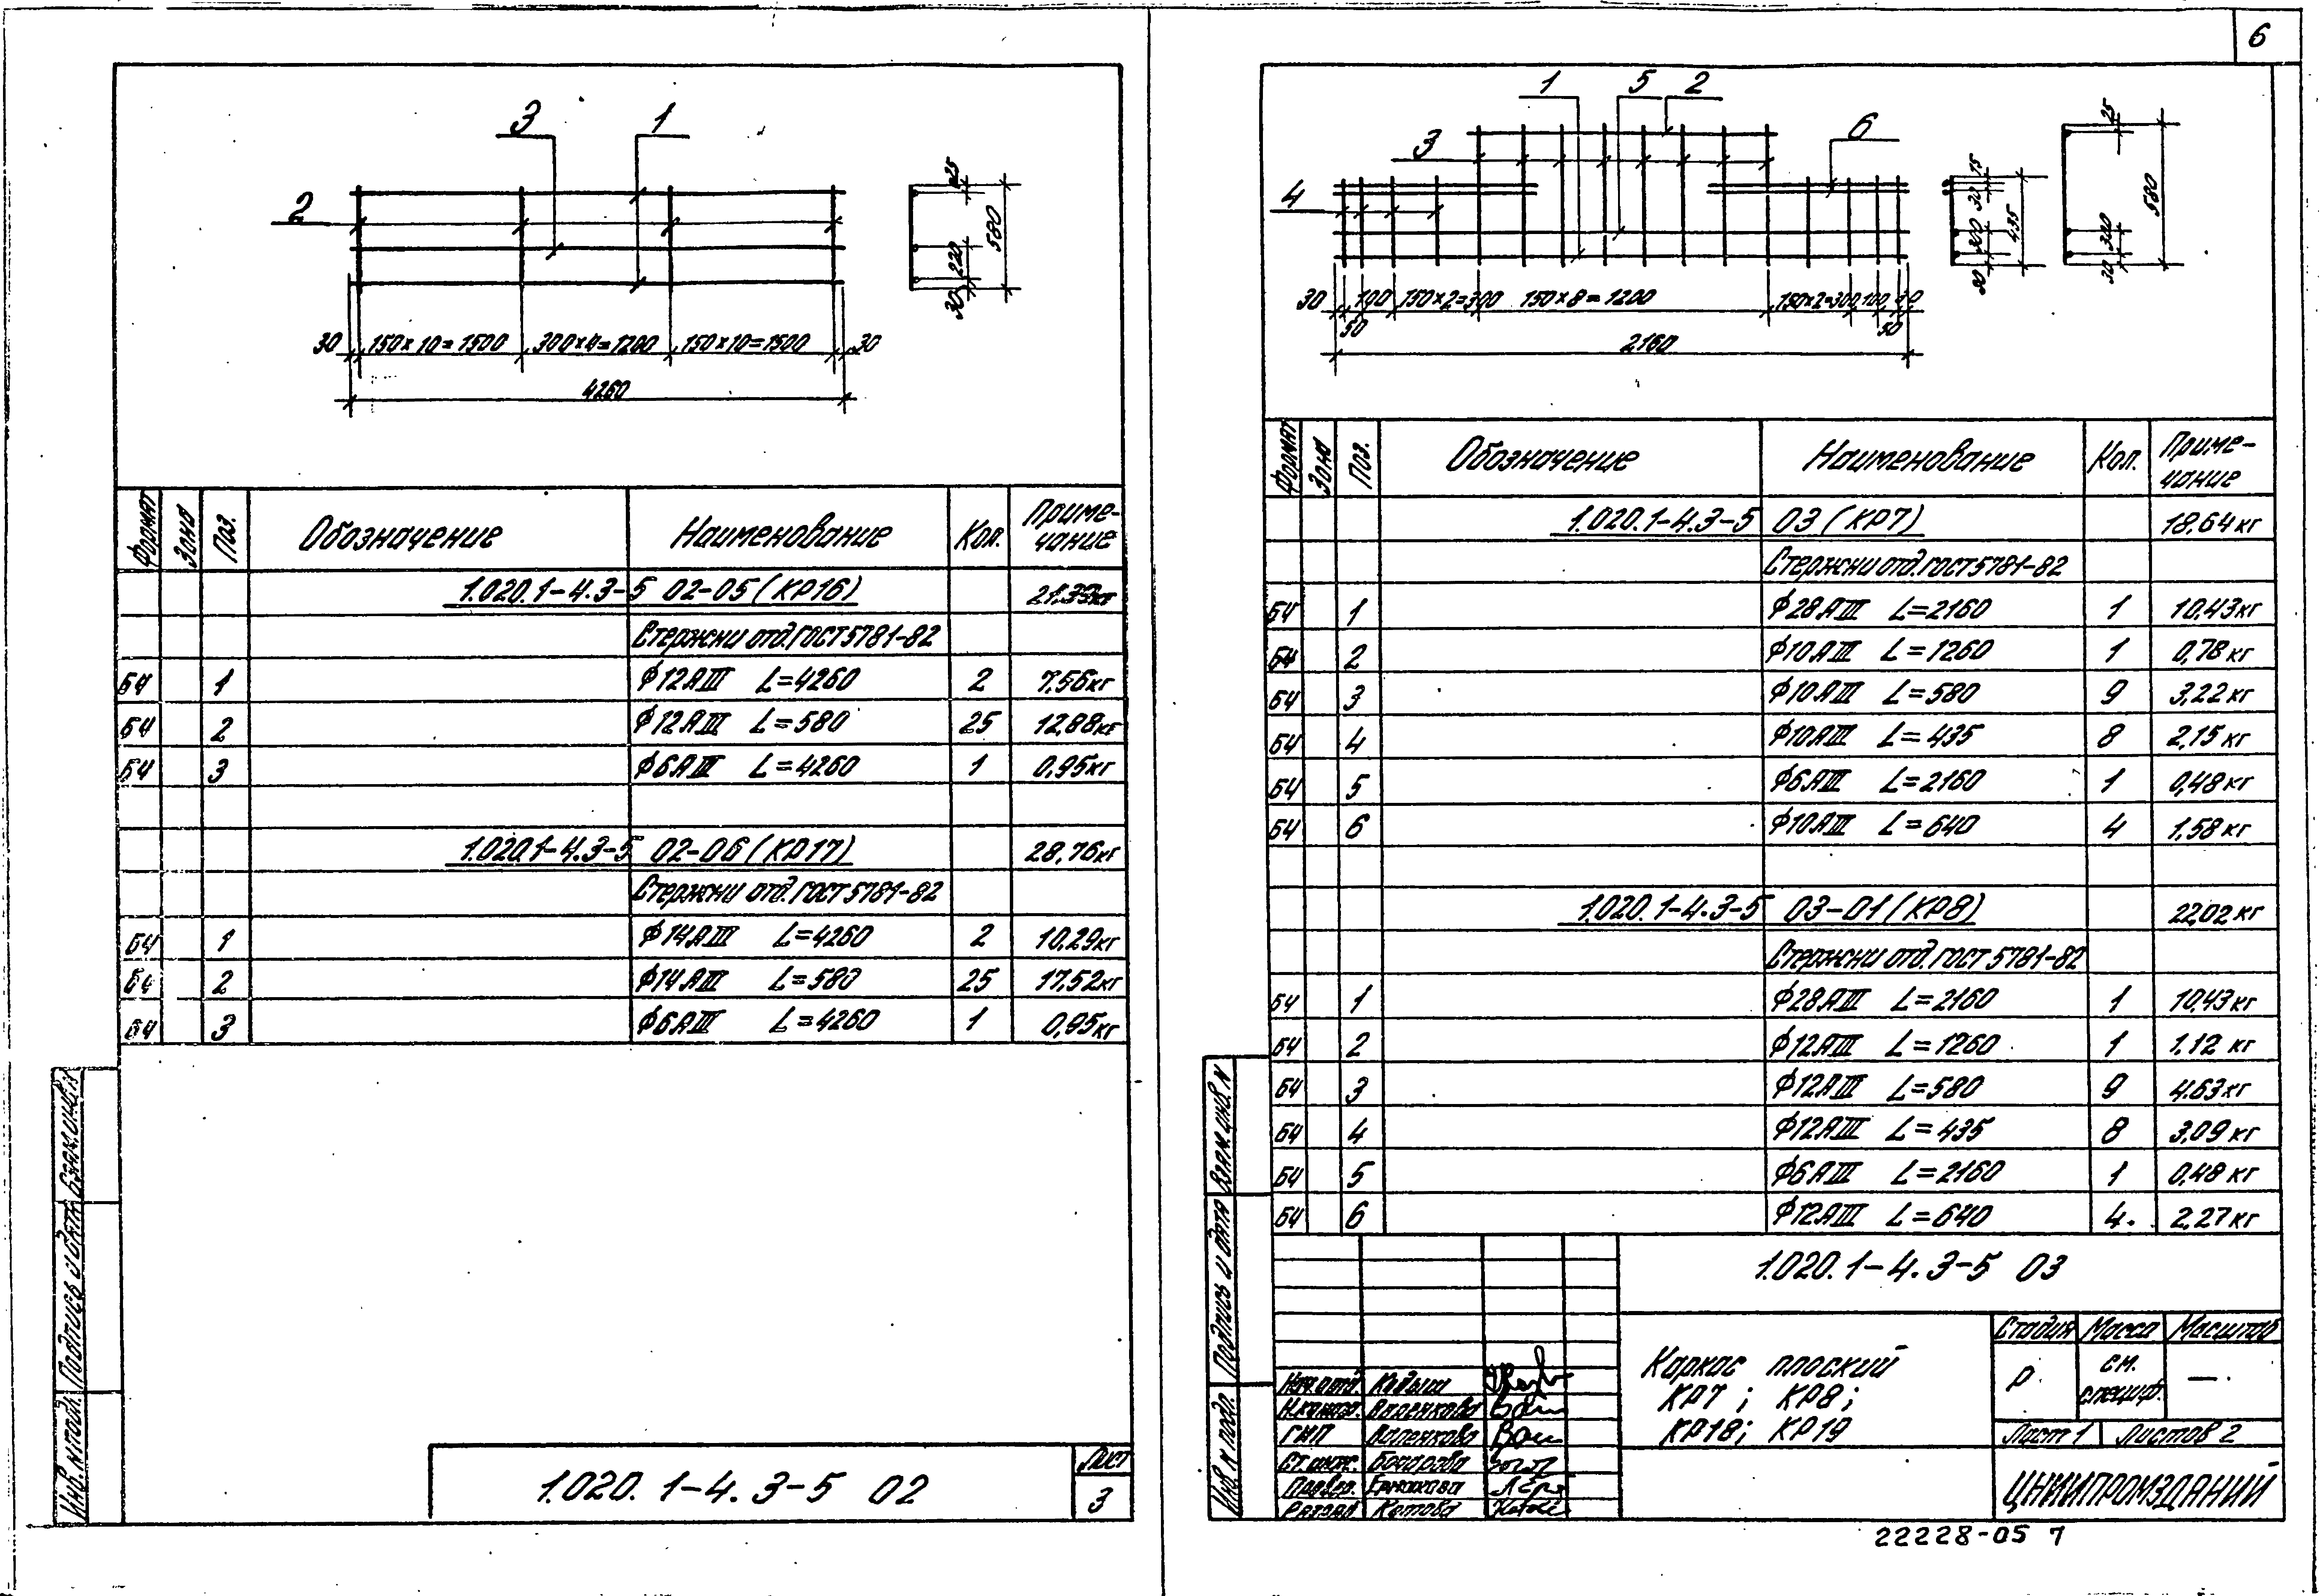 6
3 1
2
25
220
30
580
30 150×10=1500 300×4=1200 150×10=1500 30
4260
Формат Зона Поз. Обозначение Наименование Кол. Приме-
чание
1.020.1-4.3-5 02-05 (КР16) 21,39кг
Стержни отд. ГОСТ 5781-82
БЧ 1 ф12АIII L=4260 2 7,56кг
БЧ 2 ф12АIII L=580 25 12,88кг
БЧ 3 ф6АIII L=4260 1 0,95кг
1.020.1-4.3-5 02-06 (КР17) 28,76кг
Стержни отд. ГОСТ 5781-82
БЧ 1 ф14АIII L=4260 2 10,29кг
БЧ 2 ф14АIII L=580 25 17,52кг
БЧ 3 ф6АIII L=4260 1 0,95кг
Взам. инв. N
Подпись и дата
Инв. N подл.
1.020.1-4.3-5 02
Лист
3
1 5 2
3 6
4
15
30
300
30
435
25
300
30
580
30 50 100 150×2=300 150×8=1200 150×2=300 100 50
2160
Формат Зона Поз. Обозначение Наименование Кол. Приме-
чание
1.020.1-4.3-5 03 (КР7) 18,64кг
Стержни отд. ГОСТ 5781-82
БЧ 1 ф28АIII L=2160 1 10,43кг
БЧ 2 ф10АIII L=1260 1 0,78кг
БЧ 3 ф10АIII L=580 9 3,22кг
БЧ 4 ф10АIII L=435 8 2,15кг
БЧ 5 ф6АIII L=2160 1 0,48кг
БЧ 6 ф10АIII L=640 4 1,58кг
1.020.1-4.3-5 03-01 (КР8) 22,02кг
Стержни отд. ГОСТ 5781-82
БЧ 1 ф28АIII L=2160 1 10,43кг
БЧ 2 ф12АIII L=1260 1 1,12кг
БЧ 3 ф12АIII L=580 9 4.63кг
БЧ 4 ф12АIII L=435 8 3,09кг
БЧ 5 ф6АIII L=2160 1 0,48кг
БЧ 6 ф12АIII L=640 4. 2,27кг
Взам. инв. N
Подпись и дата
Инв. N подл.
1.020.1-4.3-5 03
Каркас плоский
КР7; КР8;
КР18; КР19
Стадия Масса Масштаб
Р см.
специф. —
Лист 1 Листов 2
ЦНИИПРОМЗДАНИЙ
Нач. отд. Кодыш
Н.контр.
ГИП
Ст. инж. Бочарова
Провер. Ермакова
Разраб Котова
22228-05 7